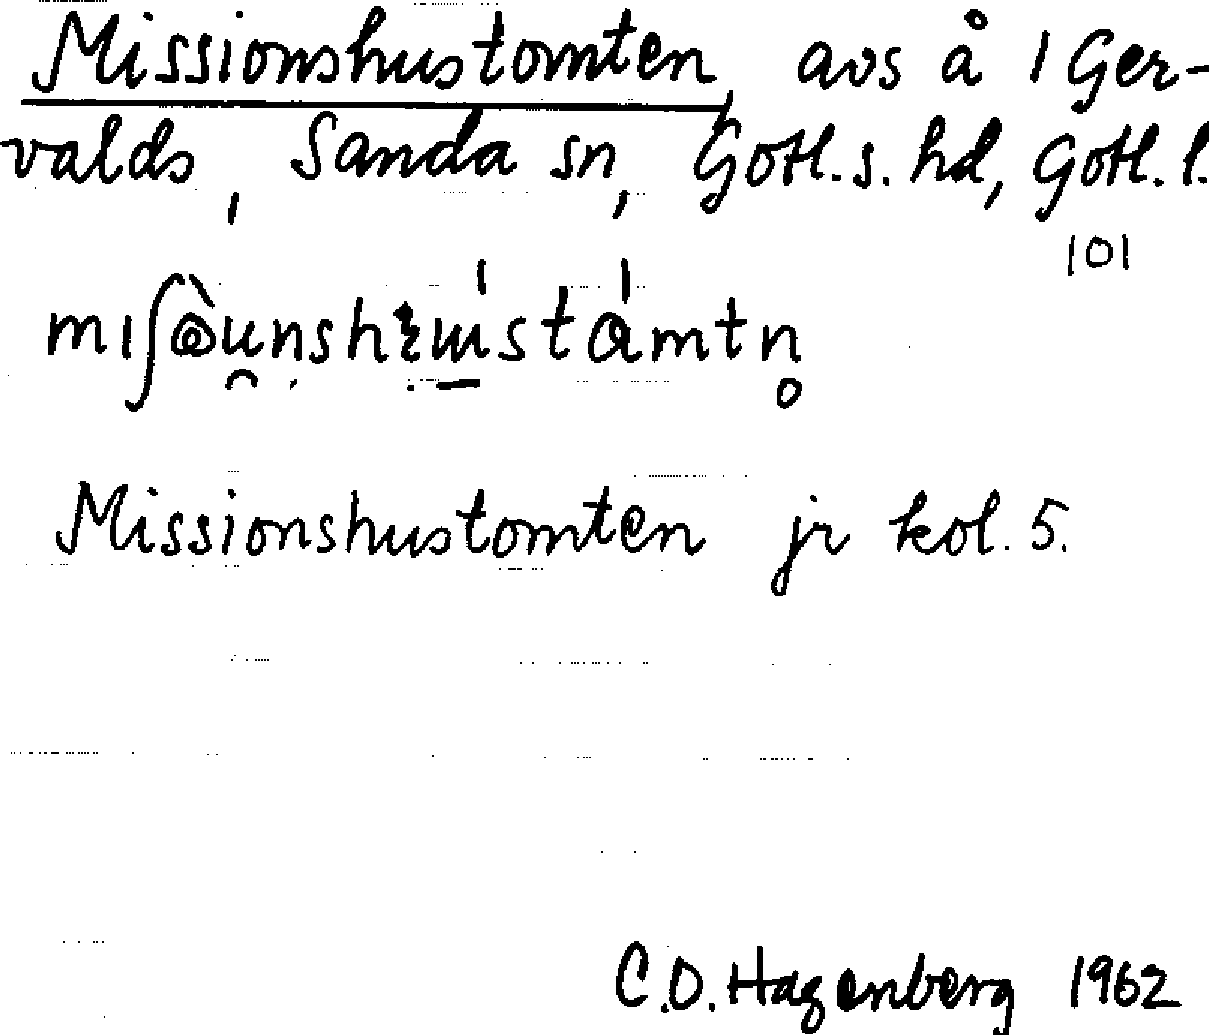 Missionshustomten, avs å 1 Ger-
valds, Sanda sn, Gotl. s. hd, Gotl. l.
101
Missionshustomten jr kol. 5.
C.D. Hagenberg 1962